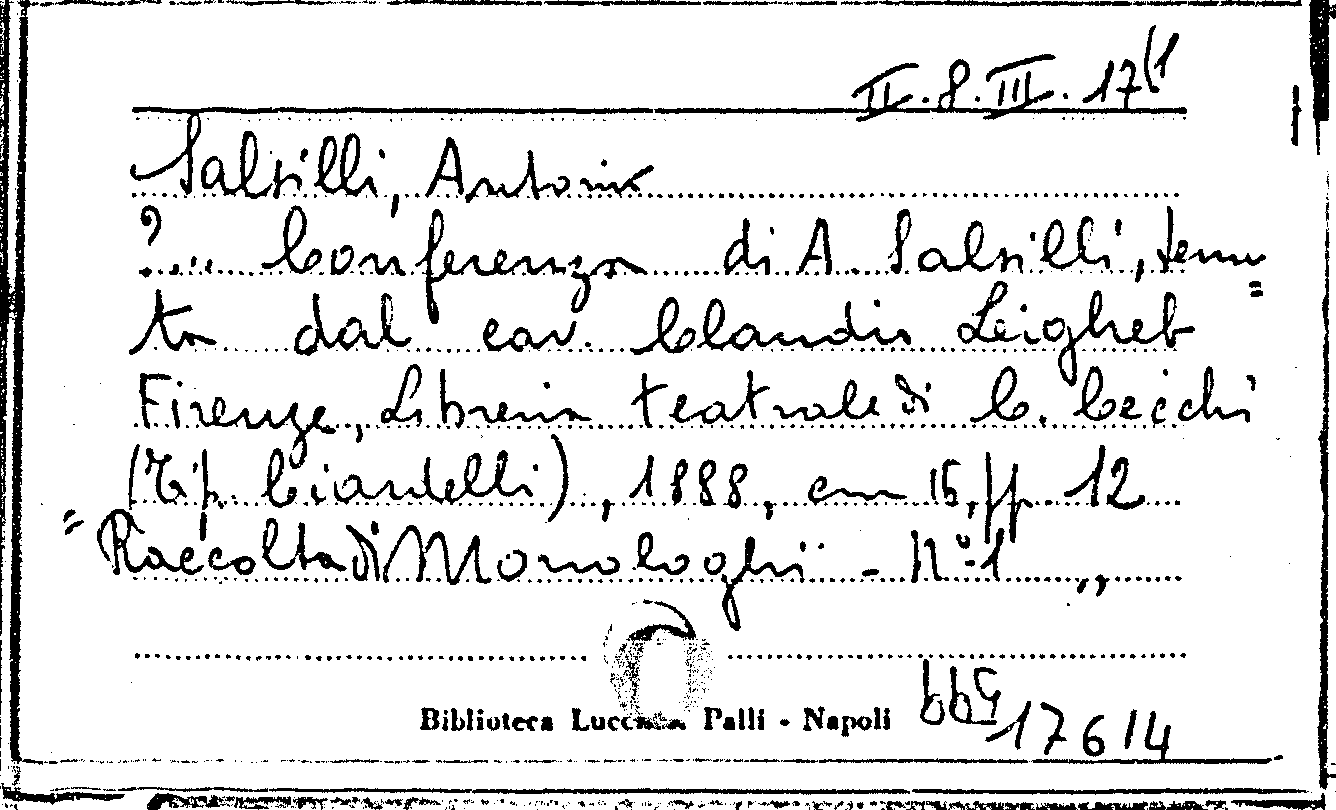 II.8.III.17(1
Salsilli, Antonio
?... Conferenza di A. Salsilli, tenu=
ta dal cav. Claudio Leigheb
Firenze, Libreria teatrale di C. Cecchi
(Tip. Ciardelli), 1888, cm 15, pp. 12
"Raccolta di Monologhi - N° 1 „
Biblioteca Palli - Napoli
17614